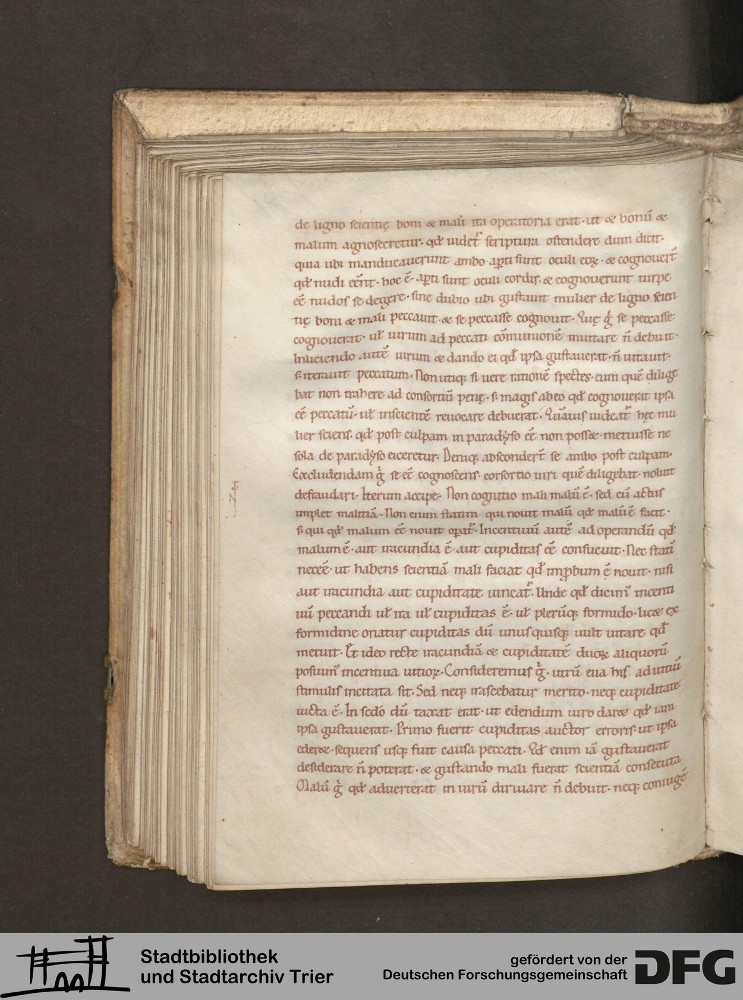 de ligno scientię boni & mali ita operatoria erat · ut & bonū &
malum agnosceretur · qđ uidet᷑ scriptura ostendere dum dicit ·
quia ubi manducauerunt ambo · apti sunt oculi eoꝝ · & cognouer̄t
qđ nudi eēnt · hoc ē · apti sunt oculi cordis · & cognouerunt turpe
eē nudos se degere · sine dubio ubi gustauit mulier de ligno scien
tię boni & mali peccauit · & se peccasse cognouit · Quę g̊ se peccasse
cognouerat · ul̄ uirum ad peccati cōmunionē inuitare n̄ debuit ·
Inuitendo autē uirum & dando ei qđ ipsa gustauerat · n̄ uitauit ·
s; iterauit peccatum · Non utiq; si uere rationē spectes · eum quē dilige
bat non trahere ad consortiū penę · s; magis ab eo qđ cognouerat ipsa
eē peccatū · ul̄ inscientē reuocare debuerat · Quāuis uideat᷑ hęc mu
lier sciens · qđ post culpam in paradyso eē non posset · metuisse ne
sola de paradyso eiceretur · Deniq; absconder̄t se ambo post culpam ·
Excludendam g̊ se eē cognoscens · consortio uiri quē diligebat · noluit
defraudari · Iterum accipe · Non cognitio mali malū ē · sed eū actus
implet malitiā · Non enim statim qui nouit malū qđ malū ē facit ·
s; qui qđ malum eē nouit opat᷑ · Incentiuū autē ad operandū qđ
malum ē · aut iracundia ē · aut cupiditas eē consueuit · Nec statī
neceē · ut habens scientiā mali faciat qđ improbum ē nouit · nisi
aut iracundia aut cupiditate uincat᷑ · Unde qđ dicimꝰ incenti
uū peccandi ul̄ ira ul̄ cupiditas ē · ul̄ plerūq; formido · licet ex
formidine oriatur cupiditas dū unusquisq; uult uitare qđ
metuit · Et ideo recte iracundiā & cupiditatē duoꝝ aliquorū
posuimꝰ incentiua uitioꝝ · Consideremus g̊ · utrū eua his ad uitiū
stimulis incitata sit · Sed neq; irascebatur merito · neq; cupiditate
uicta ē · In sedo dū taxat erat · ut edendum uiro daret qđ iam
ipsa gustauerat · Primo fuerit cupiditas auctor erroris · ut ipsa
ederet · sequens usq; fuit causa peccati · Qđ enim iā gustauerat
desiderare n̄ poterat · & gustando mali fuerat scientiā consecuta
Malū g̊ qđ aduerterat in uirū diriuare n̄ debuit · neq; coniugē